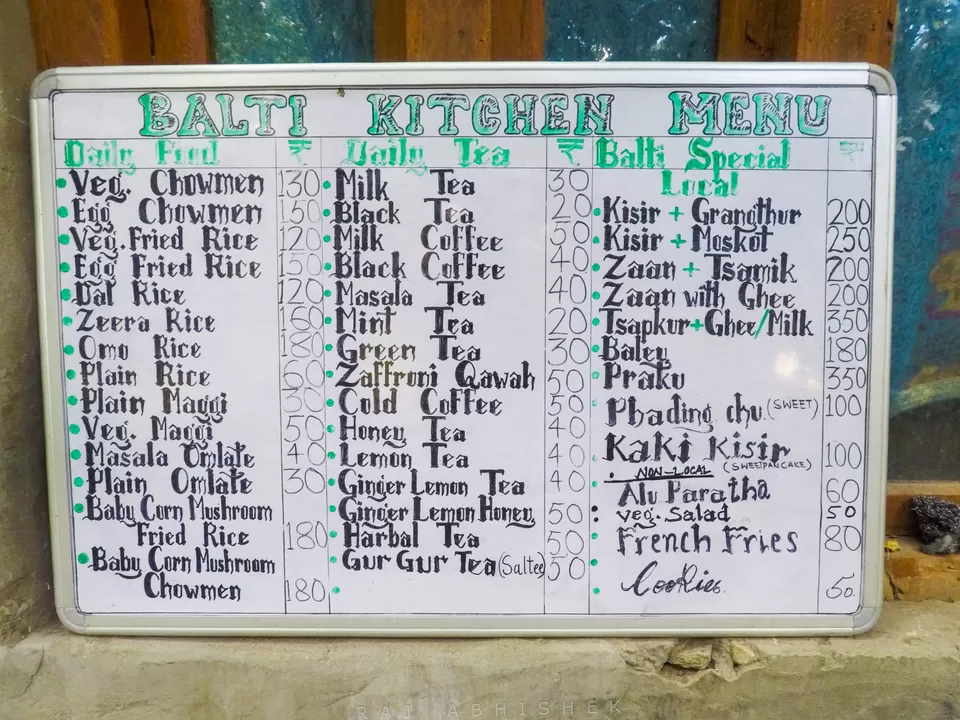 BALTI KITCHEN MENU
Daily Food ₹
Veg. Chowmen 130
Egg Chowmen 150
Veg. Fried Rice 120
Egg Fried Rice 150
Dal Rice 120
Zeera Rice 160
Omo Rice 180
Plain Rice 60
Plain Maggi 30
Veg. Maggi 50
Masala Omlate 40
Plain Omlate 30
Baby Corn Mushroom
Fried Rice 180
Baby Corn Mushroom
Chowmen 180
Daily Tea ₹
Milk Tea 30
Black Tea 20
Milk Coffee 50
Black Coffee 40
Masala Tea 40
Mint Tea 20
Green Tea 30
Zaffroni Qawah 50
Cold Coffee 50
Honey Tea 40
Lemon Tea 40
Ginger Lemon Tea 40
Ginger Lemon Honey 50
Harbal Tea 50
Gur Gur Tea (Saltee) 50
Balti Special ₹
Local
Kisir + Grangthur 200
Kisir + Moskot 250
Zaan + Tsamik 200
Zaan with Ghee 200
Tsapkur+Ghee/Milk 350
Baley 180
Praku 350
Phading chu (SWEET) 100
Kaki Kisir 100
(SWEETPANCAKE)
NON-LOCAL
Alu Paratha 60
veg. Salad 50
French Fries 80
Cookies 50.
RAJ ABHISHEK